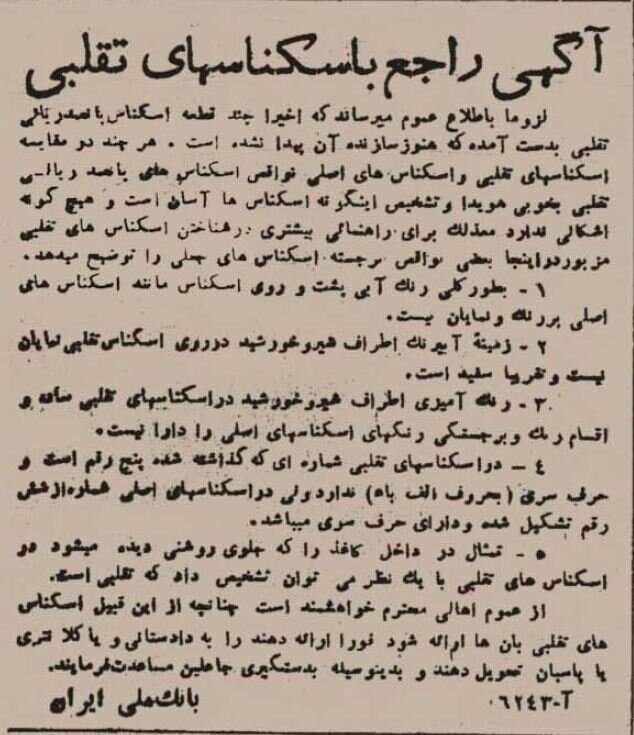 آگهی راجع باسکناسهای تقلبی
لزوما باطلاع عموم میرساند که اخیرا چند قطعه اسکناس پانصدریالی
تقلبی بدست آمده که هنوز سازنده آن پیدا نشده است . هر چند دو مقایسه
اسکناسهای تقلبی و اسکناس های اصلی نواقص اسکناس های پانصد ریالی
تقلبی بخوبی هویدا و تشخیص اینگونه اسکناس ها آسان است و هیچ گونه
اشکالی ندارد معذلک برای راهنمائی بیشتری درشناختن اسکناس های تقلبی
مزبور در اینجا بعضی نواقص برجسته اسکناس های جعلی را توضیح میدهد .
۱ - بطور کلی رنك آبی پشت و روی اسکناس مانند اسکناس های
اصلی پررنك و نمایان نیست .
۲ - زمینهٔ آبیرنك اطراف شیروخورشید درروی اسکناس تقلبی نمایان
نیست و تقریبا سفید است .
۳ - رنك آمیزی اطراف شیروخورشید در اسکناسهای تقلبی ساده و
اقسام رنك و برجستگی رنگهای اسکناسهای اصلی را دارا نیست .
٤ - در اسکناسهای تقلبی شماره ای که گذاشته شده پنج رقم است و
حرف سری (بحروف الف باء) ندارد ولی در اسکناسهای اصلی شماره از شش
رقم تشکیل شده و دارای حرف سری میباشد .
٥ - تمثال در داخل کاغذ را که جلوی روشنی دیده میشود در
اسکناس های تقلبی با یك نظر می توان تشخیص داد که تقلبی است .
از عموم اهالی محترم خواهشمند است چنانچه از این قبیل اسکناس
های تقلبی بان ها ارائه شود فورا ارائه دهند را به دادستانی و یا کلانتری
یا پاسبان تحویل دهند و بدینوسیله بدستگیری جاعلین مساعدت فرمایند .
آ-٦٢٤٣٠ بانك ملی ایران